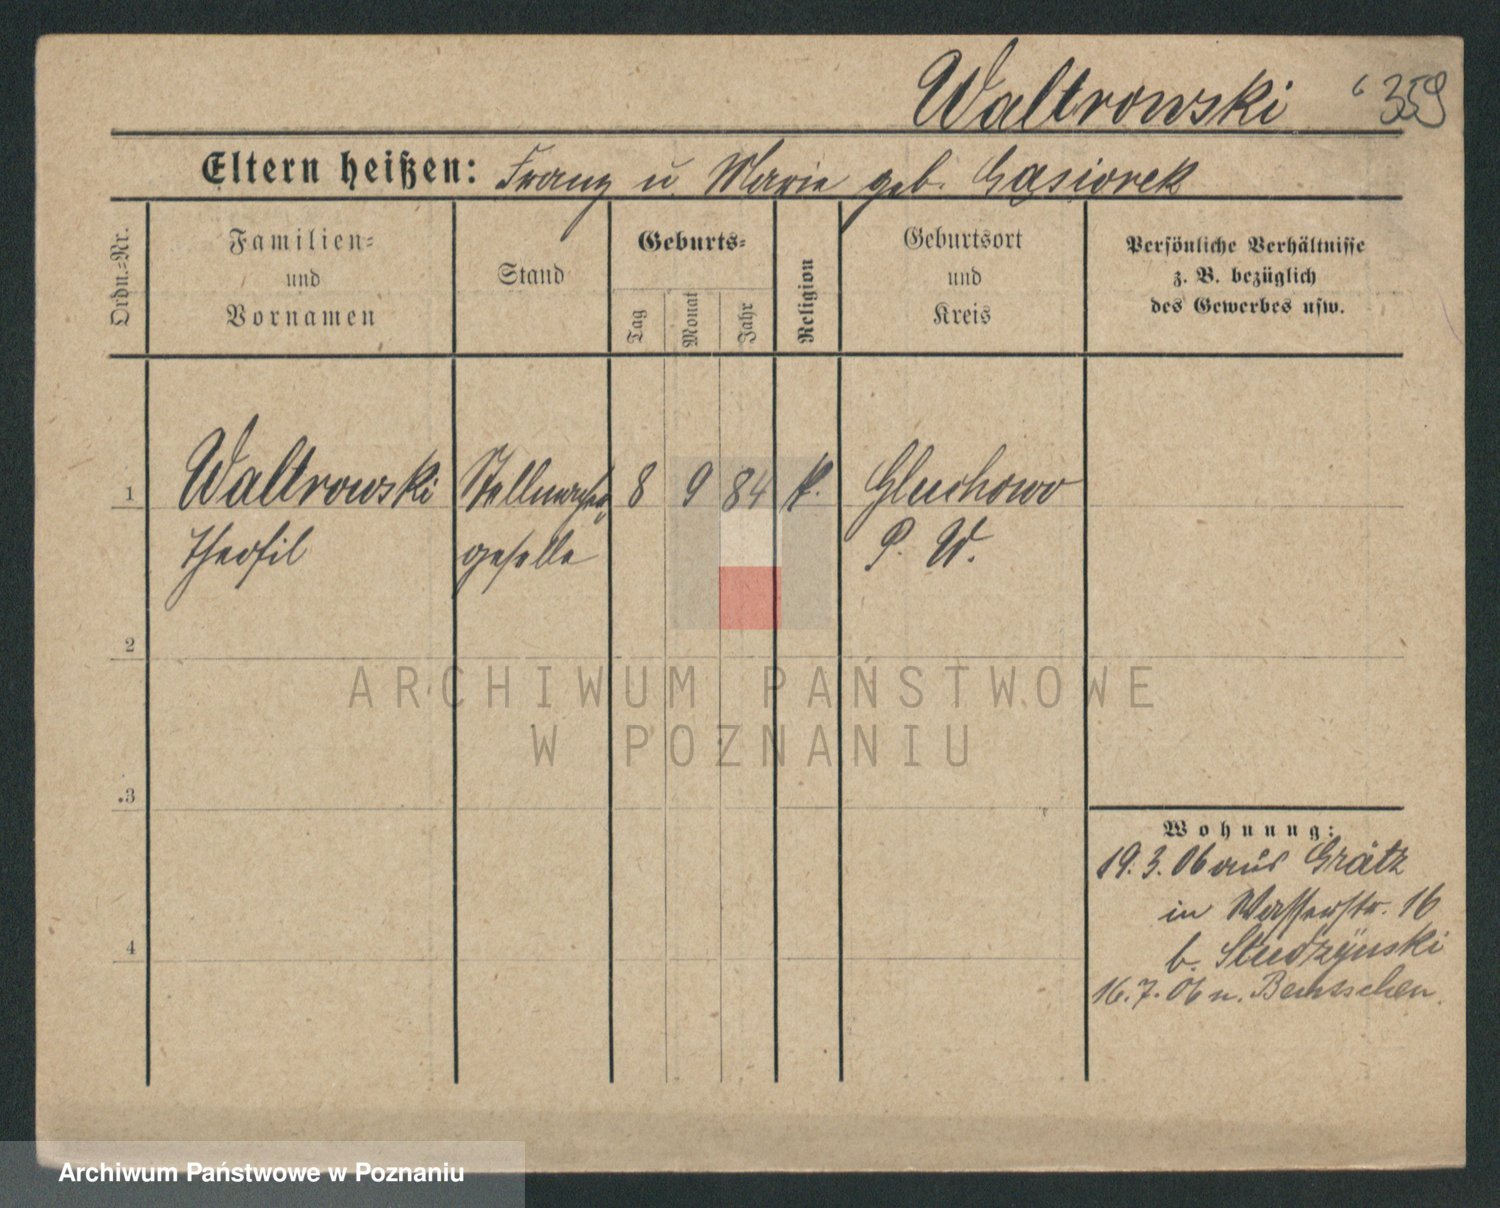 Waltrowski 359
Eltern heißen: Franz u Marie geb. Gąsiorek
Ordn.-Nr.
Familien-
und
Vornamen
Stand
Geburts-
Tag
Monat
Jahr
Religion
Geburtsort
und
Kreis
Persönliche Verhältnisse
z. B. bezüglich
des Gewerbes usw.
1 Waltrowski Stellmacher- 8 9 84 k. Gluchowo
Theofil geselle P. W.
2
ARCHIWUM PAŃSTWOWE
W POZNANIU
3
Wohnung:
19. 3. 06 aus Grätz
in Wasserstr. 16
b. Studzynski
4
16. 7. 06 n. Bentschen.
Archiwum Państwowe w Poznaniu